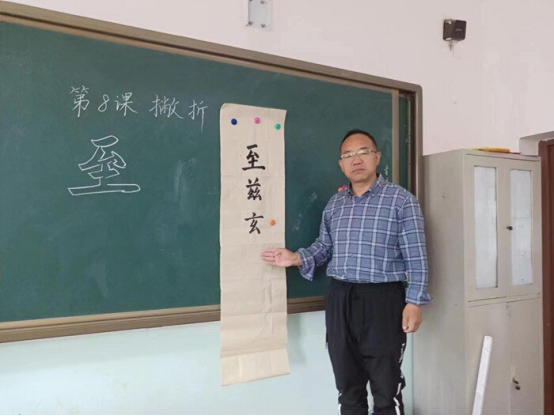 第8课 撇折
至
至
兹
玄